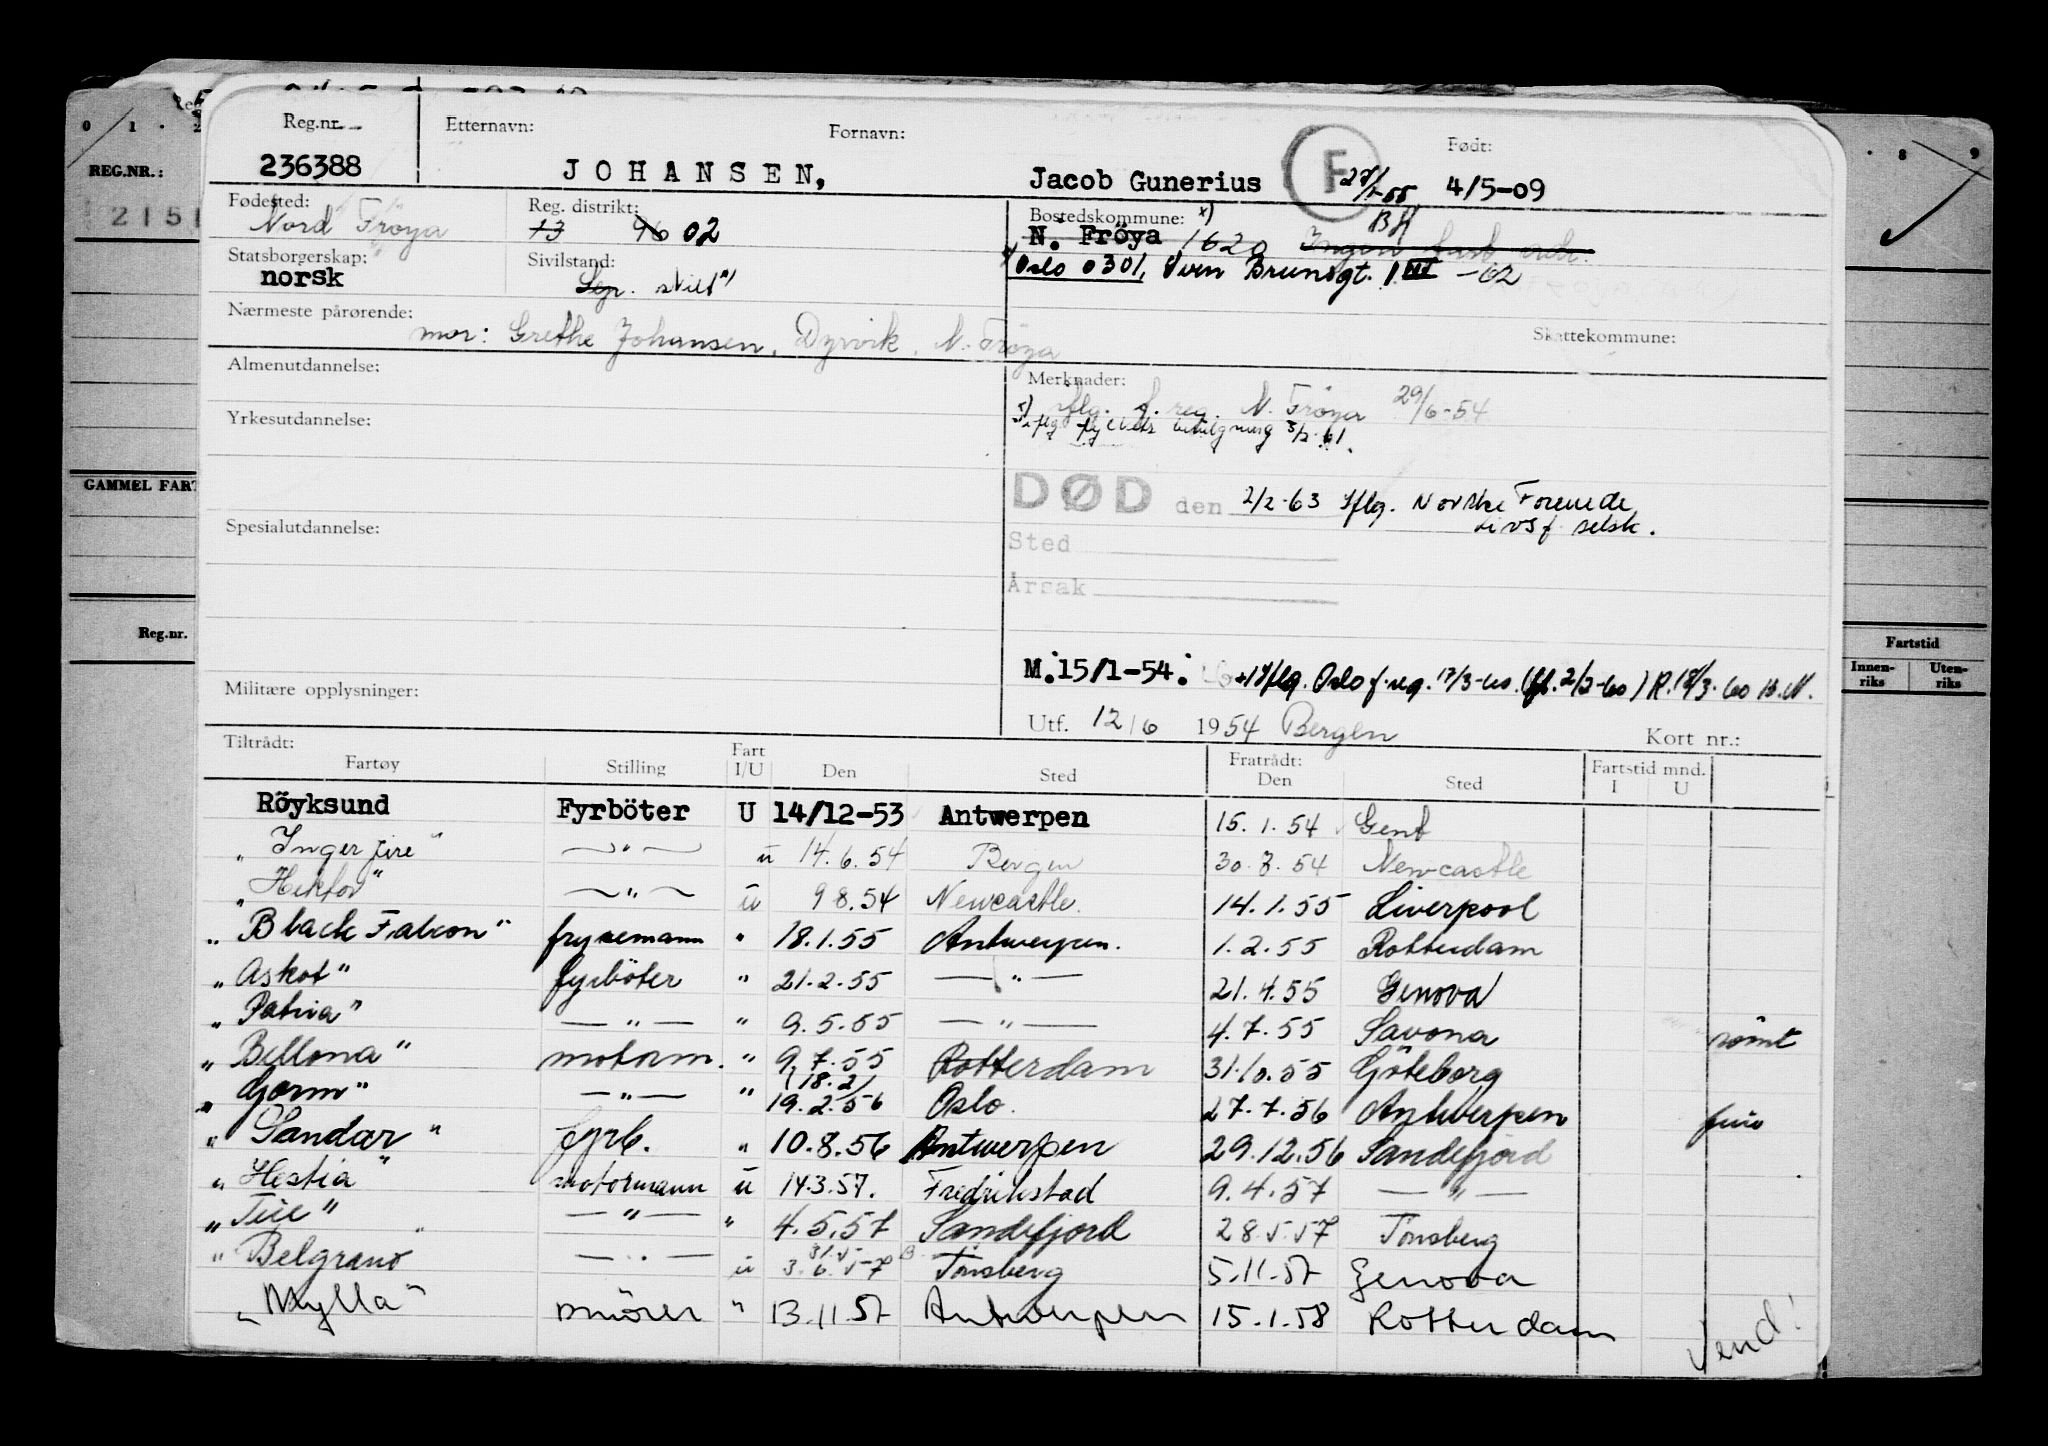 Reg.nr. Etternavn: Fornavn: F Født:
236388 JOHANSEN, Jacob Gunerius 4/5-09
Fødested: Nord Fröya Reg. distrikt: 13 96 02 Bostedskommune: x) N. Fröya 1620 Ingen fast adr.
Statsborgerskap: norsk Sivilstand: skilt Oslo 0301, Sven Brunsgt. 1 III -62
Nærmeste pårørende: mor: Grethe Johansen, Dyrvik, N. Fröya Skattekommune:
Almenutdannelse: Merknader: iflg. f. reg. N. Fröya 29/6-54
Yrkesutdannelse:
DØD den 2/2-63 Iflg. Norske Forenede Livsf. selsk.
Spesialutdannelse: Sted
Årsak
M. 15/1-54.
Iflg. Oslo f.reg. 17/3-60. R. 18/3-60
Militære opplysninger:
Utf. 12/6 1954 Bergen Kort nr.:
Tiltrådt: Fratrådt:
Fartøy Stilling Fart I/U Den Sted Den Sted Fartstid mnd. I U
Röyksund Fyrböter U 14/12-53 Antwerpen 15.1.54 Gent
„Inger Jire" — " — u 14.6.54 Bergen 30.7.54 Newcastle
„Hektor" — " — u 9 8.54 Newcastle 14.1.55 Liverpool
„Black Falcon" frysemann " 18.1.55 Antwerpen. 1.2.55 Rotterdam
„Askot" fyrböter " 21.2.55 — " — 21.4.55 Genova
„Patria" — " — " 9.5.55 — " — 4.7.55 Savona römt
„Bellona" motorm. " 9.7.55 Rotterdam 31.10.55 Göteborg
„Gorm" — " — " (18.2) 19.2.56 Oslo. 27.7.56 Antwerpen
„Sandar" fyrb. " 10.8.56 Antwerpen 29.12.56 Sandefjord
„Hestia" motormann u 14.3.57. Fredrikstad 9.4.57 — " —
„Tire" — " — " 4.5.57 Sandefjord 28.5.57 Tönsberg
„Belgrano" — " — u 31.5 3.6.57 Tönsberg 5.11.57 Genova
„Mylla" smörer " 13.11.57 Antwerpen 15.1.58 Rotterdam
Vend!
0 1 2
REG.NR.:
2151
GAMMEL FART
Reg.nr.
8 9
Fartstid
Innenriks Utenriks